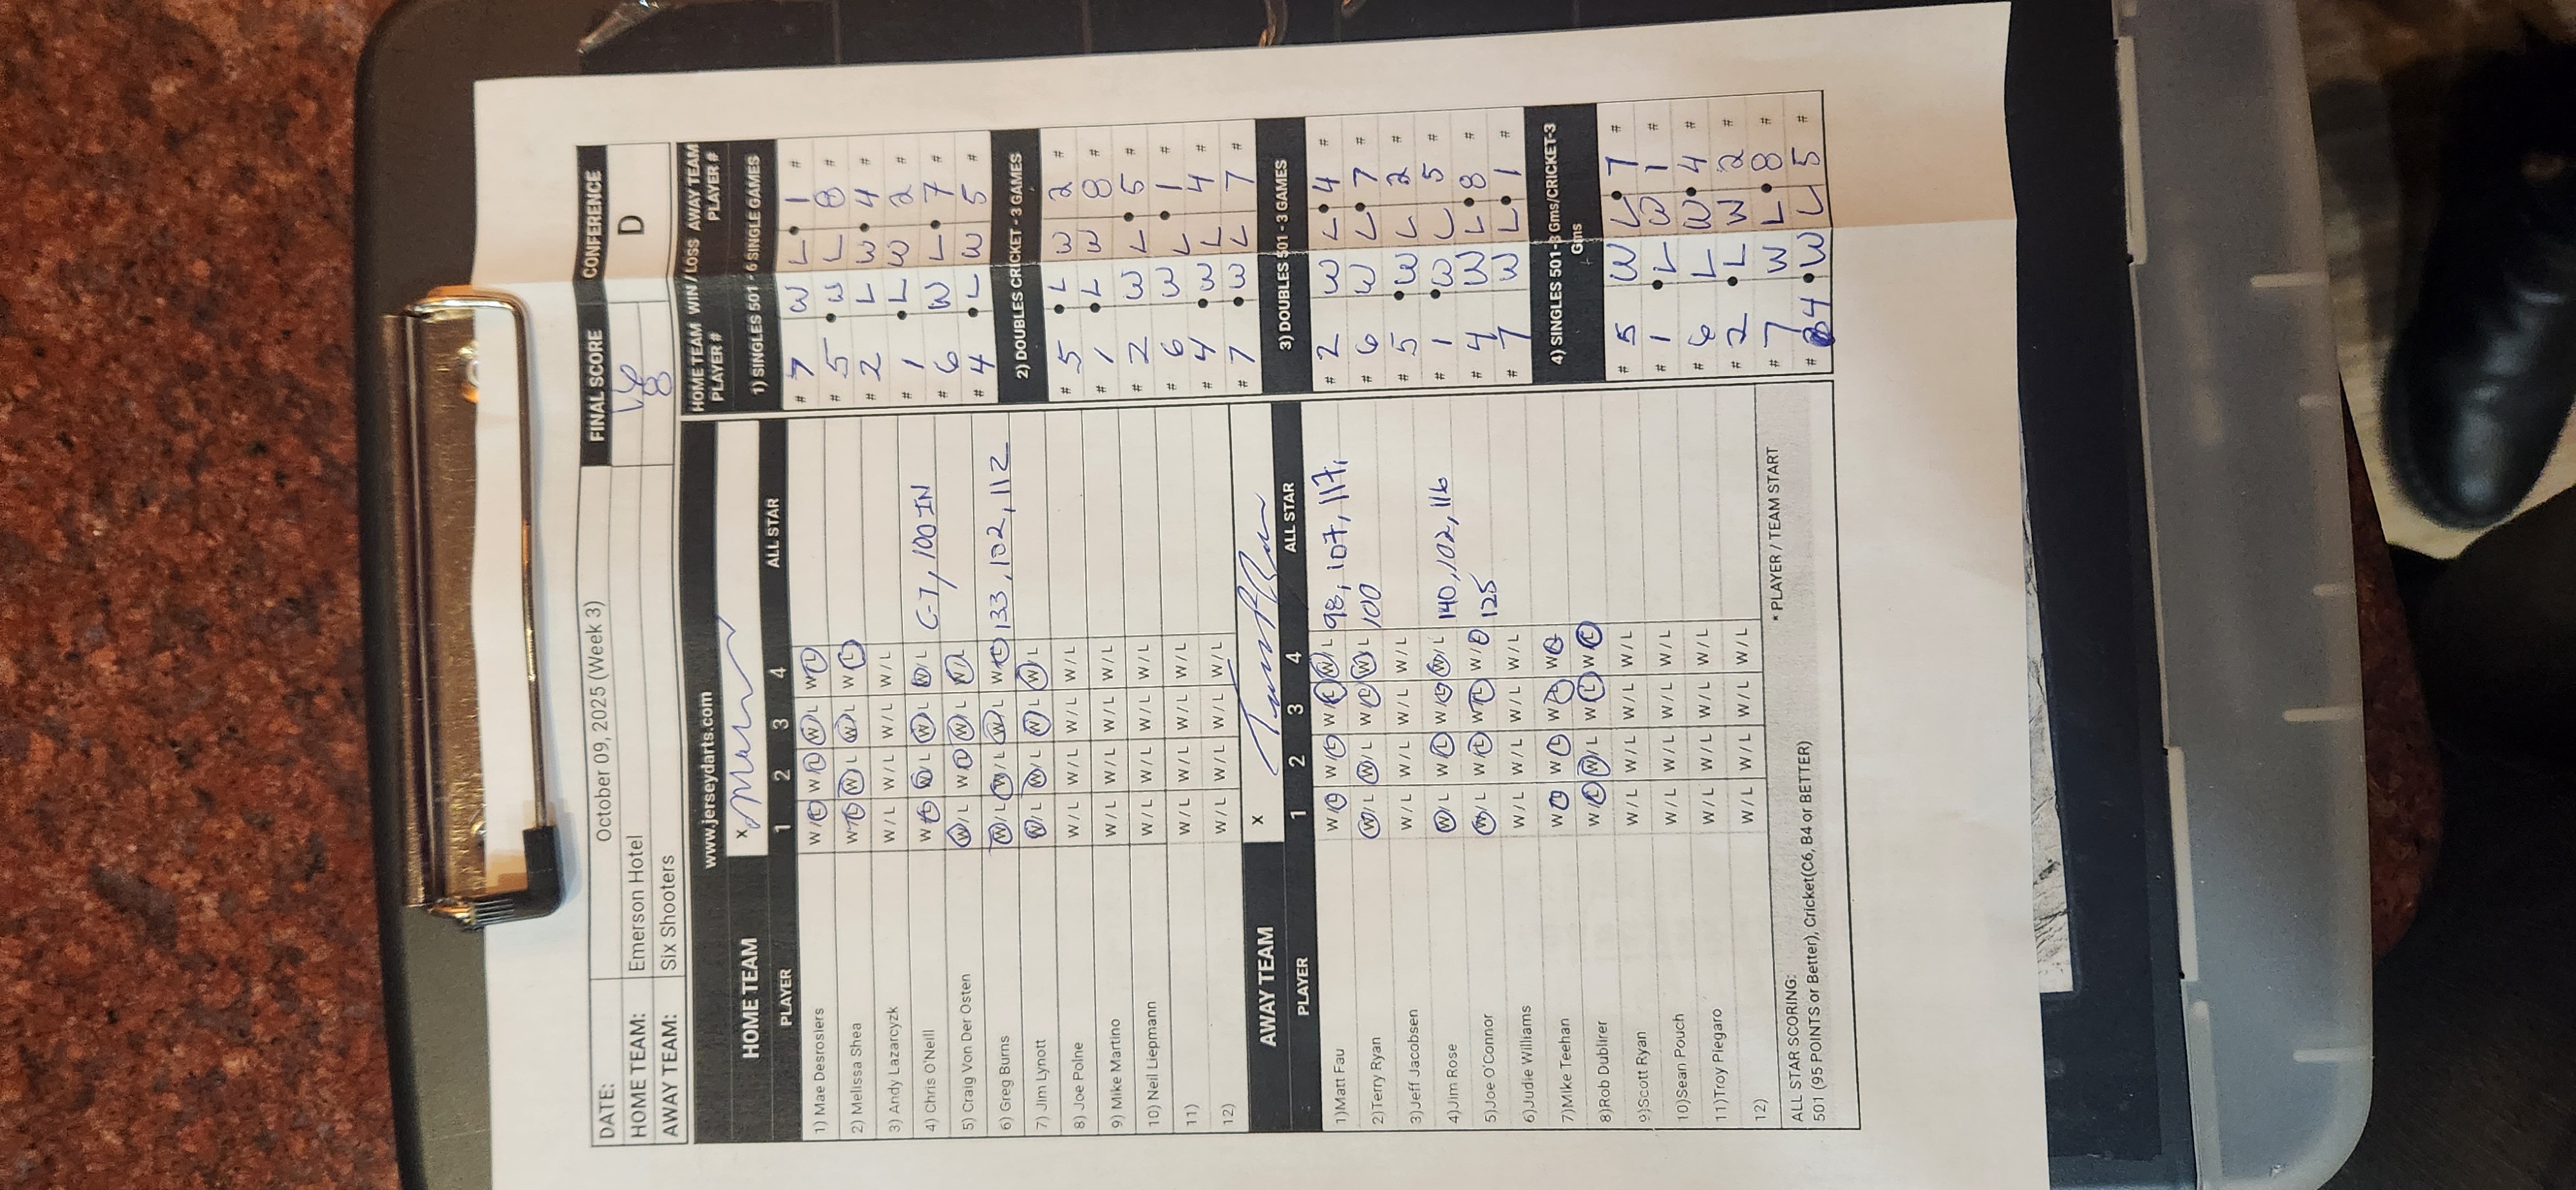 DATE: October 09, 2025 (Week 3) FINAL SCORE CONFERENCE
HOME TEAM: Emerson Hotel D
AWAY TEAM: Six Shooters 8
www.jerseydarts.com
HOME TEAM PLAYER # WIN / LOSS AWAY TEAM PLAYER #
HOME TEAM X
PLAYER 1 2 3 4 ALL STAR
1) Mae Desrosiers W/L W/L W/L W/L
2) Melissa Shea W/L W/L W/L W/L
3) Andy Lazarcyzk W/L W/L W/L W/L
4) Chris O'Neill W/L W/L W/L W/L C-7, 100 IN
5) Craig Von Der Osten W/L W/L W/L W/L
6) Greg Burns W/L W/L W/L W/L 133, 102, 112
7) Jim Lynott W/L W/L W/L W/L
8) Joe Polne W/L W/L W/L W/L
9) Mike Martino W/L W/L W/L W/L
10) Neil Liepmann W/L W/L W/L W/L
11) W/L W/L W/L W/L
12) W/L W/L W/L W/L
AWAY TEAM X
PLAYER 1 2 3 4 ALL STAR
1)Matt Fau W/L W/L W/L W/L 98, 107, 117,
2)Terry Ryan W/L W/L W/L W/L 100
3)Jeff Jacobsen W/L W/L W/L W/L
4)Jim Rose W/L W/L W/L W/L 140, 102, 116
5)Joe O'Connor W/L W/L W/L W/L 125
6)Judie Williams W/L W/L W/L W/L
7)Mike Teehan W/L W/L W/L W/L
8)Rob Dublirer W/L W/L W/L W/L
9)Scott Ryan W/L W/L W/L W/L
10)Sean Pouch W/L W/L W/L W/L
11)Troy Piegaro W/L W/L W/L W/L
12) W/L W/L W/L W/L
ALL STAR SCORING: * PLAYER / TEAM START
501 (95 POINTS or Better), Cricket(C6, B4 or BETTER)
1) SINGLES 501 - 6 SINGLE GAMES
# 7 W L • 1 #
# 5 • W L 8 #
# 2 L W • 4 #
# 1 • L W 2 #
# 6 W L • 7 #
# 4 • L W 5 #
2) DOUBLES CRICKET - 3 GAMES
# 5 • L W 2 #
# 1 • L W 8 #
# 2 W L • 5 #
# 6 W L • 1 #
# 4 • W L 4 #
# 7 • W L 7 #
3) DOUBLES 501 - 3 GAMES
# 2 W L • 4 #
# 6 W L • 7 #
# 5 • W L 2 #
# 1 • W L 5 #
# 4 W L • 8 #
# 7 W L • 1 #
4) SINGLES 501-3 Gms/CRICKET-3 Gms
# 5 W L • 7 #
# 1 • L W 1 #
# 6 L W • 4 #
# 2 • L W 2 #
# 7 W L • 8 #
# 4 • W L 5 #